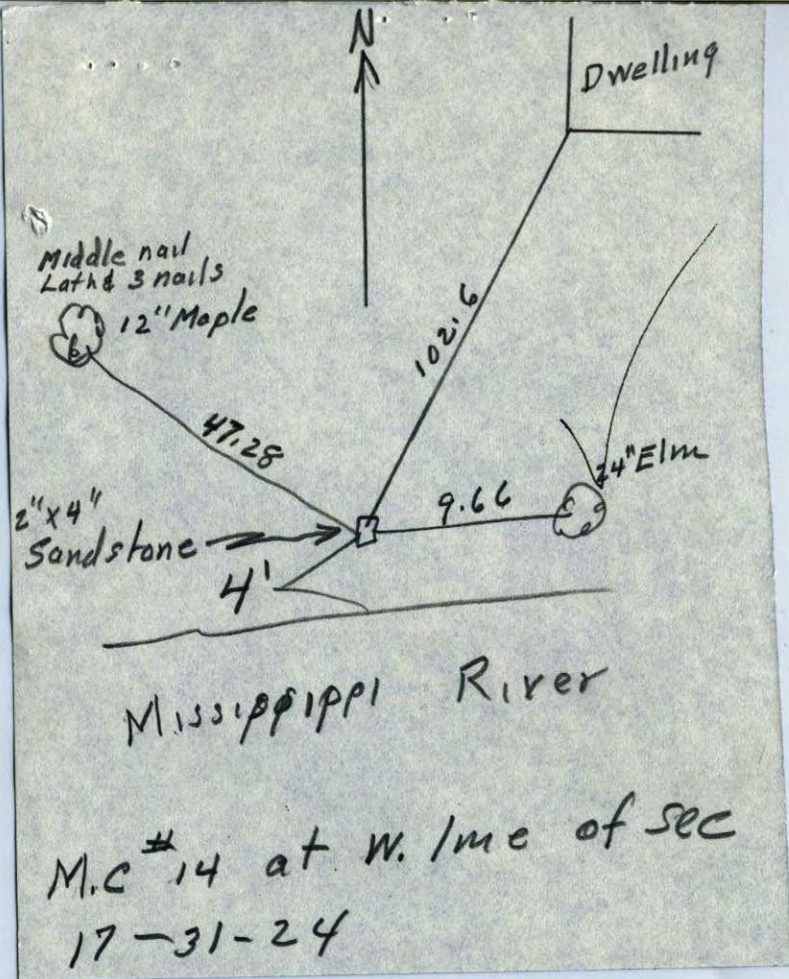 N
Dwelling
Middle nail
Lath & 3 nails
12" Maple
102.6
47.28
24" Elm
9.66
2" x 4"
Sandstone
4'
Mississippi River
M.C #14 at W. line of sec
17-31-24